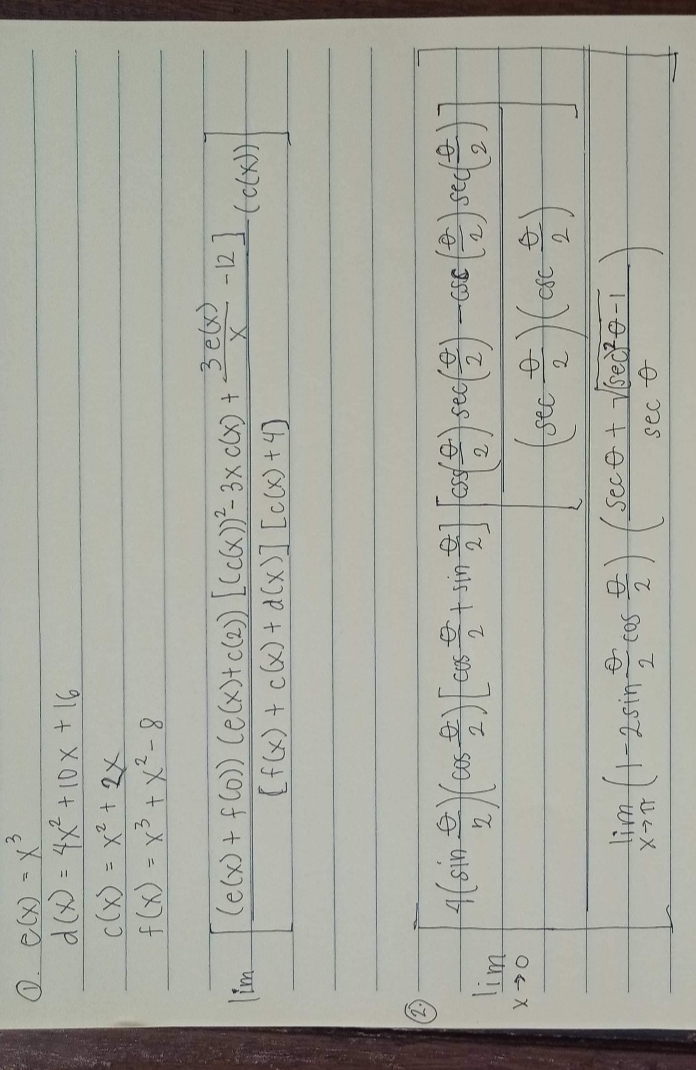 ①. e(x) = x³
d(x) = 4x² + 10x + 16
c(x) = x² + 2x
f(x) = x³ + x² - 8
lim [ (e(x) + f(0)) (e(x) + c(2)) [(c(x))² - 3x c(x) + 3e(x)/x - 12] (c(x)) / [f(x) + c(x) + d(x)] [c(x) + 4] ]
②.
lim x→0 [ 4(sin θ/2)(cos θ/2) [cos θ/2 + sin θ/2] [ csc(θ/2) sec(θ/2) - csc(θ/2) sec(θ/2)) / (sec θ/2)(csc θ/2) ]
lim x→π (1 - 2 sin θ/2 cos θ/2) ( sec θ + √(sec)² θ - 1 / sec θ ) ]